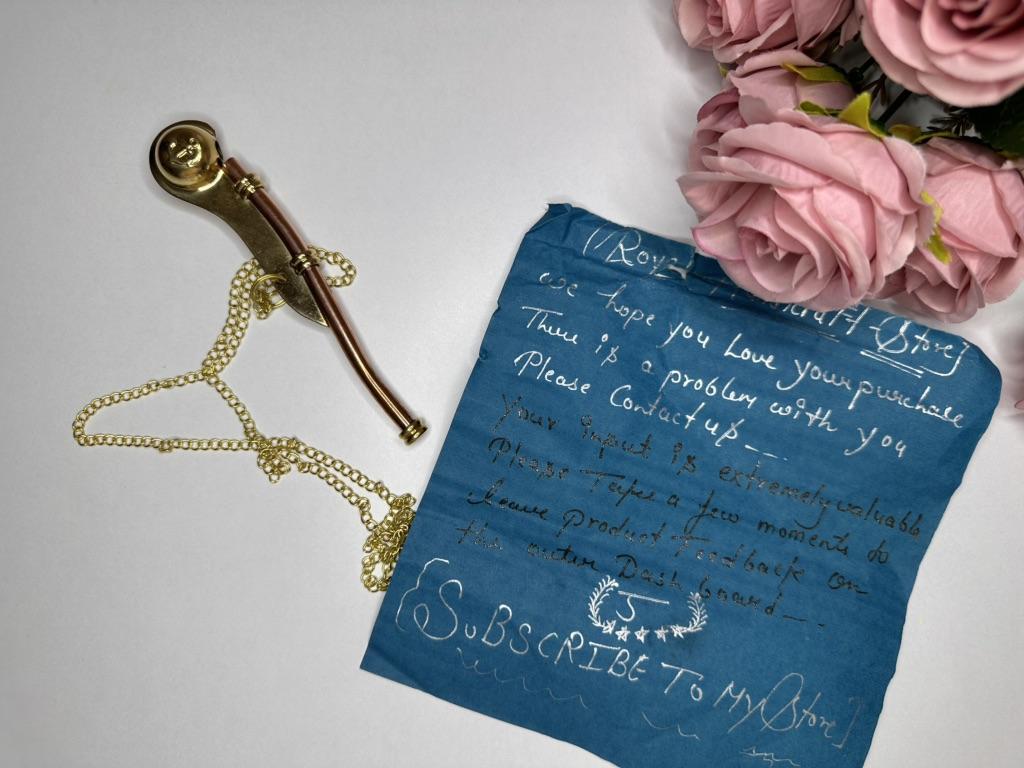 we hope you Love your purchase
There is a problem with you
Please Contact us
Your input is extremely valuable
Please Take a few moments to
leave product Feedback on
the Dash board
5
{SUBSCRIBE TO MY Store}